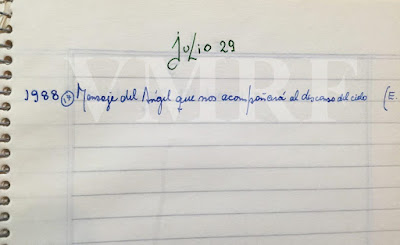 Julio 29
VMRF
1988 (17) Mensaje del Ángel que nos acompañará al descenso del cielo (E.